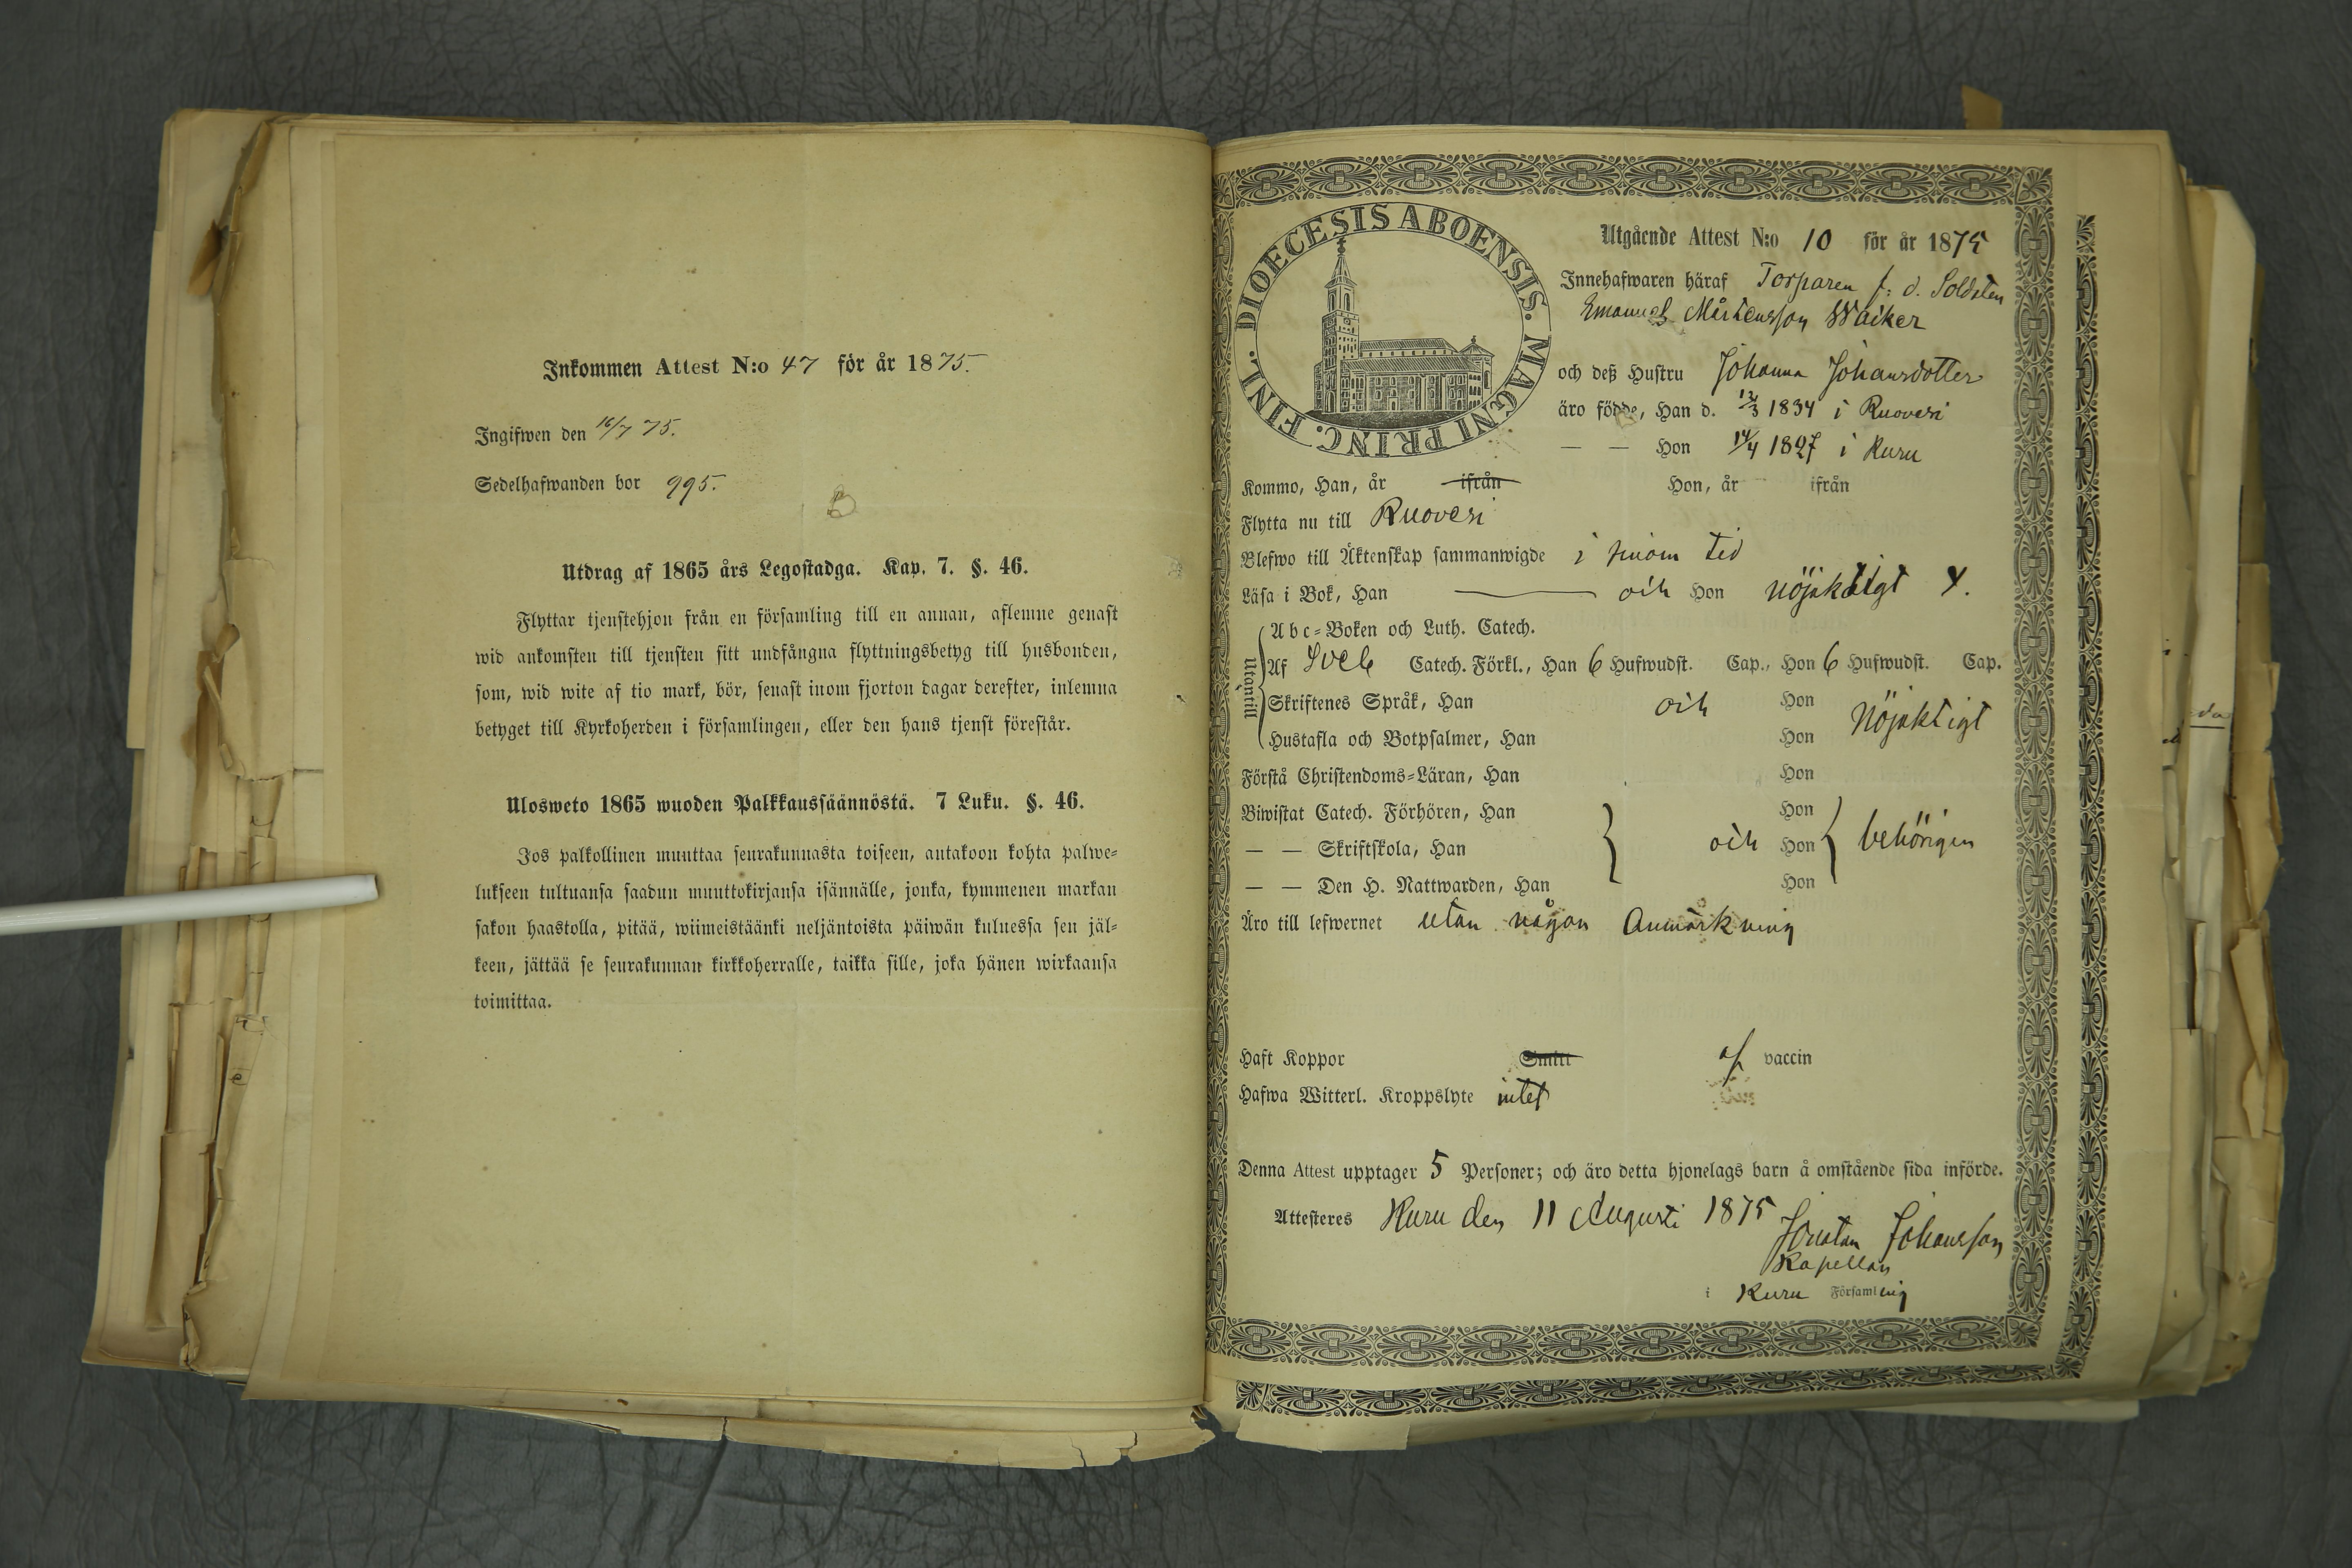 Inkommen Attest N:o 47 för år 1875.
Ingifwen den 16/7 75.
Sedelhafwanden bor 995.
Utdrag af 1865 års Legostadga. Kap. 7. §. 46.
Flyttar tjenstehjon från en församling till en annan, aflemne genast
wid ankomsten till tjensten sitt undfångna flyttningsbetyg till husbonden,
som, wid wite af tio mark, bör, senast inom fjorton dagar derefter, inlemna
betyget till Kyrkoherden i församlingen, eller den hans tjenst förestår.
Ulosweto 1865 wuoden Palkkaussäännöstä. 7 Luku. §. 46.
Jos palkollinen muuttaa seurakunnasta toiseen, antakoon kohta palwe-
lukseen tultuansa saadun muuttokirjansa isännälle, jonka, kymmenen markan
sakon haastolla, pitää, wiimeistäänki neljäntoista päiwän kuluessa sen jäl-
keen, jättää se seurakunnan kirkkoherralle, taikka sille, joka hänen wirkaansa
toimittaa.
DIOECESIS ABOENSIS. MAGNI PRINC. FINL.
Utgående Attest N:o 10 för år 1875
Innehafwaren häraf Torparen f: d. Soldaten
Emanuel Mårtensson Waiker
och deß Hustru Johanna Johansdotter
äro födde, Han d. 12/3 1834 i Ruovesi
— — Hon 14/4 1827 i Kuru
Kommo, Han, år ifrån Hon, år ifrån
Flytta nu till Ruovesi
Blefwo till Äktenskap sammanwigde i sinom tid
Läsa i Bok, Han och Hon nöjaktigt
Utantill
Abc-Boken och Luth. Catech.
Af Sveb Catech. Förkl., Han 6 Hufwudst. Cap., Hon 6 Hufwudst. Cap.
Skriftenes Språk, Han och Hon Nöjaktigt
Hustafla och Botpsalmer, Han Hon
Förstå Christendoms-Läran, Han Hon
Biwistat Catech. Förhören, Han Hon
— — Skriftskola, Han och Hon behörigen
— — Den H. Nattwarden, Han Hon
Äro till lefwernet utan någon Anmärkning
Haft Koppor Smitt af vaccin
Hafwa Witterl. Kroppslyte intet
Denna Attest upptager 5 Personer; och äro detta hjonelags barn å omstående sida införde.
Attesteres Kuru den 11 Augusti 1875
Jonatan Johansson
Kapellan
i Kuru Församling